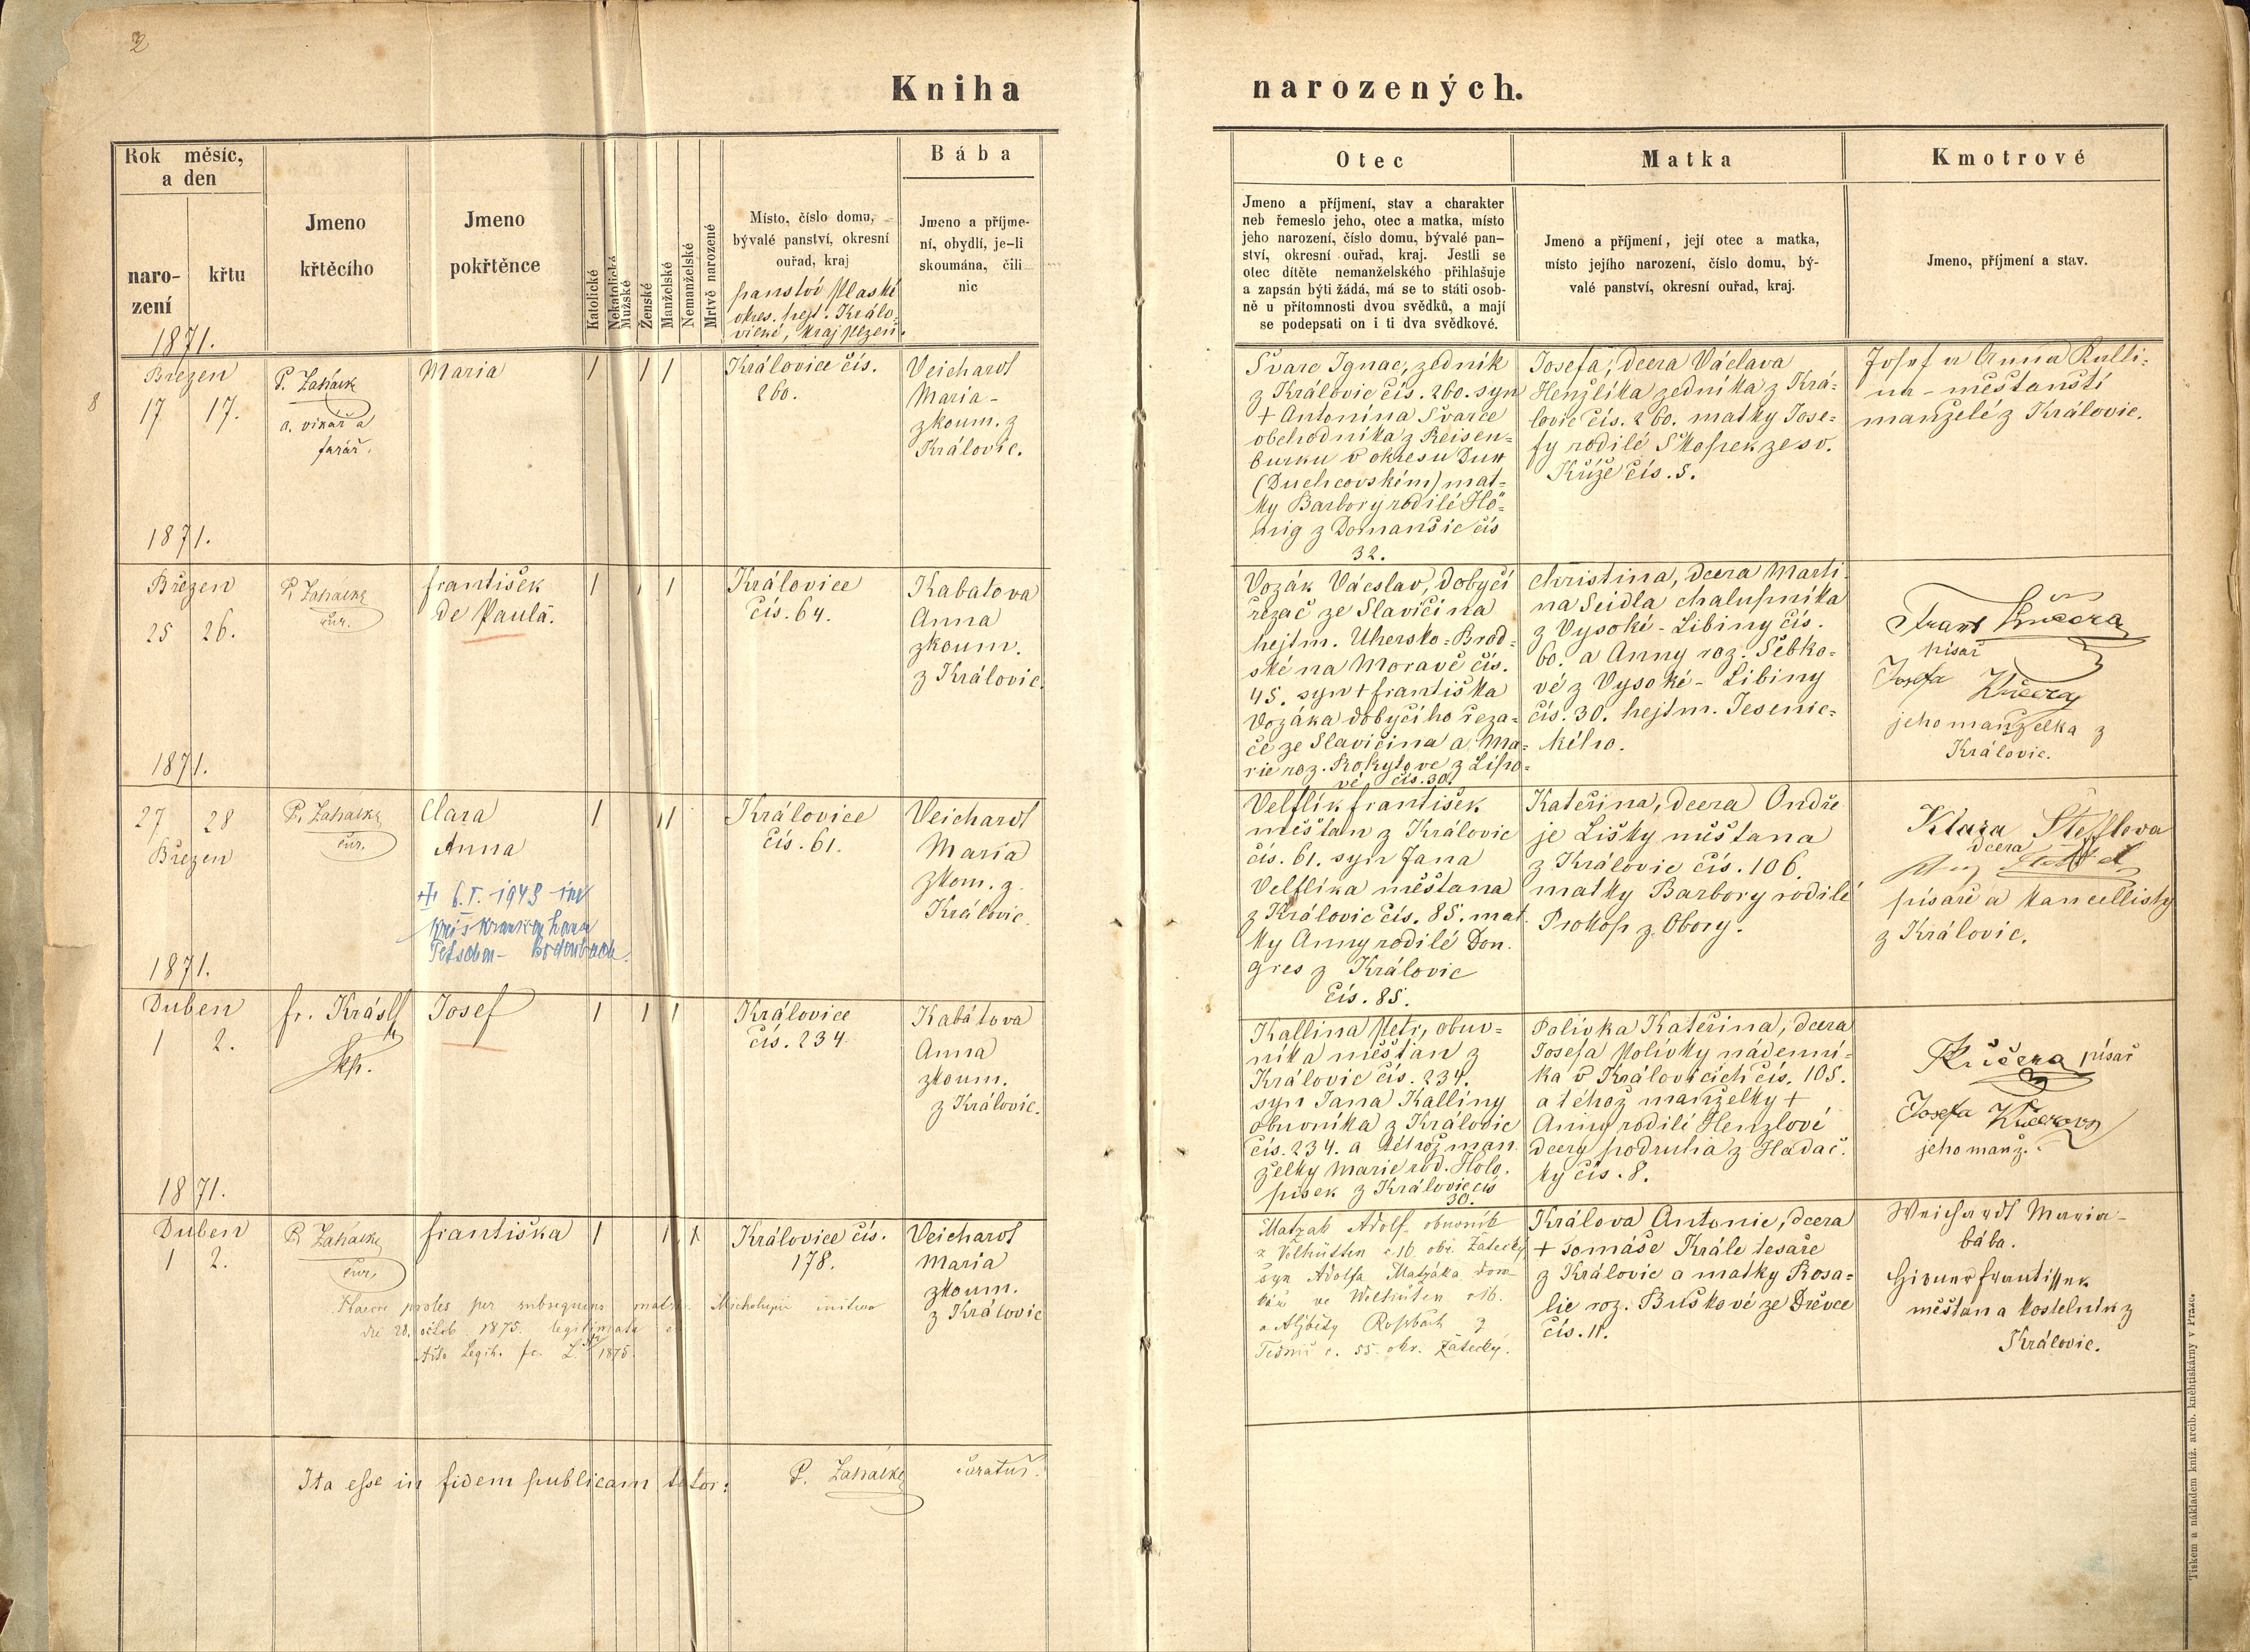 2
Kniha narozených.
Rok měsíc,
a den
naro-
zení
křtu
Jmeno
křtěcího
Jmeno
pokřtěnce
Katolické
Nekatolické
Mužské
Ženské
Manželské
Nemanželské
Mrtvě narozené
Místo, číslo domu,
bývalé panství, okresní
ouřad, kraj
panství Plaské
okres. hejt. Králo-
vické, kraj Plzeň.
Bába
Jmeno a příjme-
ní, obydlí, je-li
skoumána, čili
nic
Otec
Jmeno a příjmení, stav a charakter
neb řemeslo jeho, otec a matka, místo
jeho narození, číslo domu, bývalé pan-
ství, okresní ouřad, kraj. Jestli se
otec dítěte nemanželského přihlašuje
a zapsán býti žádá, má se to státi osob-
ně u přítomnosti dvou svědků, a mají
se podepsati on i ti dva svědkové.
Matka
Jmeno a příjmení, její otec a matka,
místo jejího narození, číslo domu, bý-
valé panství, okresní ouřad, kraj.
Kmotrové
Jmeno, příjmení a stav.
1871.
8
Březen
17 17.
P. Zahálka
o. vikář a
farář.
Maria
Královice čís.
260.
Veichardt
Maria -
zkoum. z
Královic.
Švarc Ignac, zedník
z Královic čís. 260. syn
+ Antonína Švarce
obchodníka z Reisen=
burku v okresu Dux
(Duchcovském) mat=
ky Barbory rodilé Hö=
nig z Domaušic čís
32.
Josefa, dcera Václava
Henzlíka zedníka z Krá=
lovic čís. 260. matky Jose=
fy rodilé Skopek ze sv.
Kříže čís. 5.
Josef a Anna Kalli=
na - měšťanští
manželé z Královic.
1871.
Březen
25 26.
P. Zahálka
cur.
František
de Paula.
Královice
čís. 64.
Kabatova
Anna
zkoum.
z Královic.
Vozák Václav, dobyčí
řezač ze Slavičína
hejtm. Uhersko=Brod=
ské na Moravě čís.
45. syn + Františka
Vozáka dobyčího řeza=
če ze Slavičína a Ma=
rie roz. Rokytove z Lipo=
vé, čís. 30.
Christina, dcera Marti-
na Seidla chalupníka
z Vysoké - Libiny čís.
60. a Anny roz. Šebko=
vé z Vysoké - Libiny
čís. 30. hejtm. Jesenic=
kého.
Frant Kučera
písař
Josefa Kučera
jeho manželka z
Královic.
1871.
27 28
Březen
P. Zahálka
cur.
Clara
Anna
6. I. 1943 im
Kreiskrankenhaus
Tetschen - Bodenbach.
Královice
čís. 61.
Veichardt
Maria
zkom. z
Královic.
Velflík František
měšťan z Královic
čís. 61. syn Jana
Velflíka měšťana
z Královic čís. 85. mat.
ky Anny rodilé Don.
gres z Královic
čís. 85.
Kateřina, dcera Ondře
je Lišky měšťana
z Královic čís. 106.
matky Barbory rodilé
Prokop z Obory.
Klara Štefflova
dcera
písaře a kancellisty
z Královic.
1871.
Duben
1 2.
fr. Krásl
kp.
Josef
Královice
čís. 234
Kabátova
Anna
zkoum.
z Královic.
Kallina Petr, obuv=
níka měšťan z
Královic čís. 234.
syn Jana Kalliny
obuvníka z Královic
čís. 234. a téhož man
želky Marie rod. Holo.
písek z Královic čís
30.
Polívka Kateřina, dcera
Josefa Polívky nádenní=
ka v Královicích čís. 105.
a téhož manželky +
Anny rodilé Henzlové
dcery podruha z Hadač.
ky čís. 8.
Kučera písař
Josefa Kučerova
jeho manž.
1871.
Duben
1 2.
P. Zahálka
cur.
Františka
Královice čís.
178.
Veichardt
Maria
zkoum.
z Královic
Haecce proles per subsequens matr. initum
die 28. octob. 1875. legitimata
1875.
Matzak Adolf obuvník
z č 16. okr. Žatecký
syn Adolfa Matzáka
č 16.
a Alžběty z
č. 55. okr. Žatecký.
Králova Antonie, dcera
+ Tomáše Krále tesaře
z Královic a matky Rosa=
lie roz. Buškové ze Dřevce
čís. 11.
Weichardt Maria -
bába.
měšťan a kostelník z
Královic.
Ita esse in fidem publicam testor: P. Zahálka curatus.
Tiskem a nákladem kníž. arcib. kněhtiskárny v Praze.